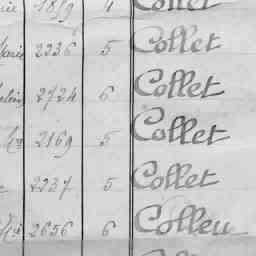 1819 4 Collet
2236 5 Collet
2724 6 Collet
2169 5 Collet
2237 5 Collet
2656 6 Colleu